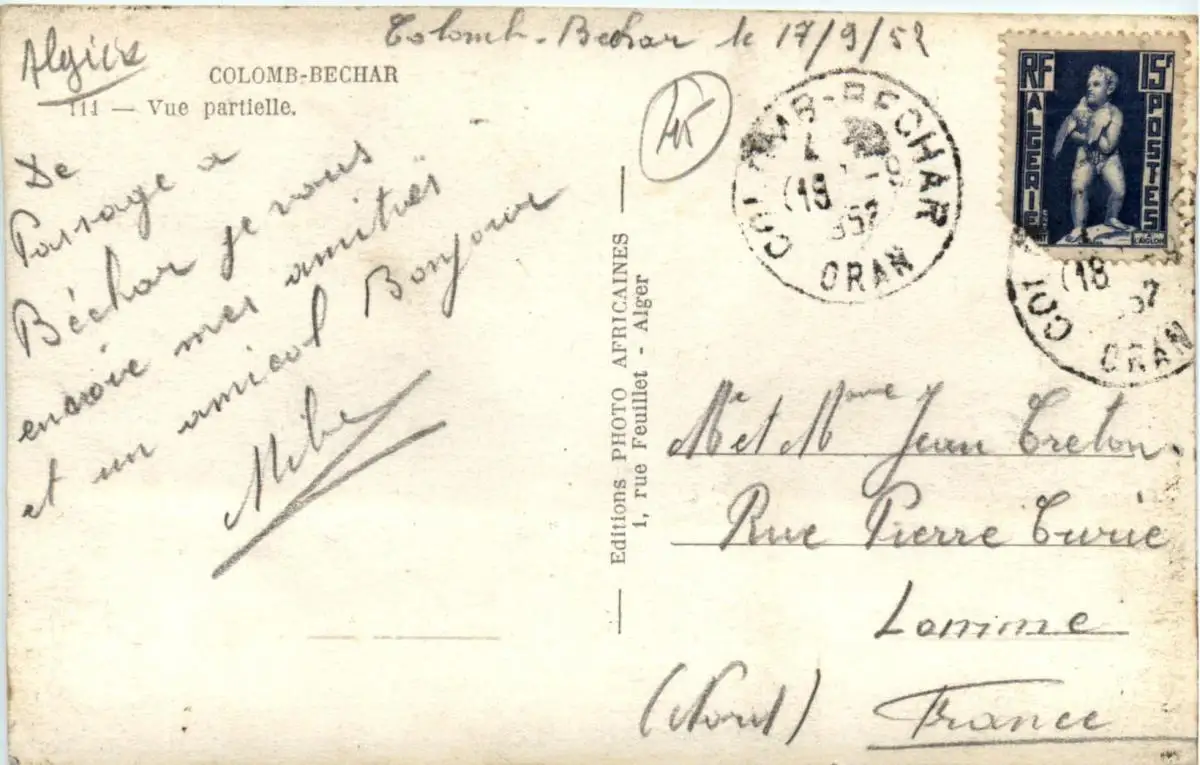 Colomb-Bechar le 17/9/52
COLOMB-BECHAR
111 — Vue partielle.
De
Passage a
Béchar je vous
envoie mes amitiés
et un amical Bonjour
Editions PHOTO AFRICAINES
1, rue Feuillet - Alger
COLOMB-BECHAR
ORAN
RF
15F
ALGERIE
POSTES
L'AIGLON
(18
ORAN
Mr et Mme Jean Creton
Rue Pierre Curie
Lomme
(Nord) France